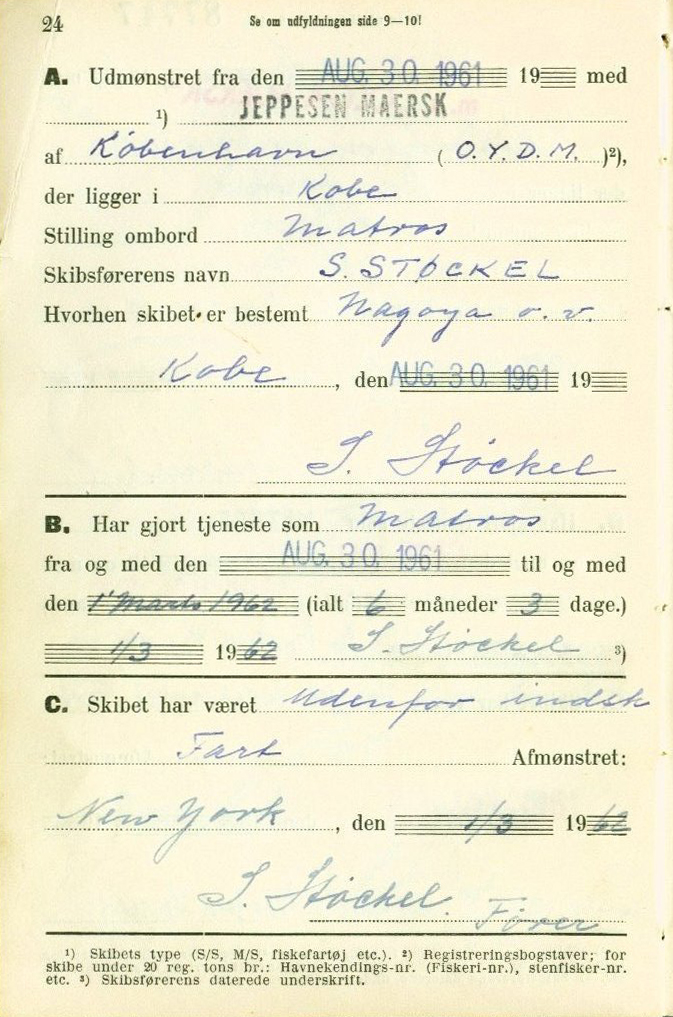 24 Se om udfyldningen side 9—10!
A. Udmønstret fra den AUG. 30. 1961 19 med
1) JEPPESEN MAERSK
af København (O.Y.D.M.)2),
der ligger i Kobe
Stilling ombord Matros
Skibsførerens navn S. STØCKEL
Hvorhen skibet er bestemt Nagoya o. v.
Kobe, den AUG. 30. 1961 19
S. Støckel
B. Har gjort tjeneste som Matros
fra og med den AUG. 30. 1961 til og med
den 1' Marts 1962 (ialt 6 måneder 3 dage.)
1/3 1962 S. Støckel 3)
C. Skibet har været Udenfor indsk
Fart Afmønstret:
New York, den 1/3 1962
S. Støckel. Fører
1) Skibets type (S/S, M/S, fiskefartøj etc.). 2) Registreringsbogstaver; for
skibe under 20 reg. tons br.: Havnekendings-nr. (Fiskeri-nr.), stenfisker-nr.
etc. 3) Skibsførerens daterede underskrift.